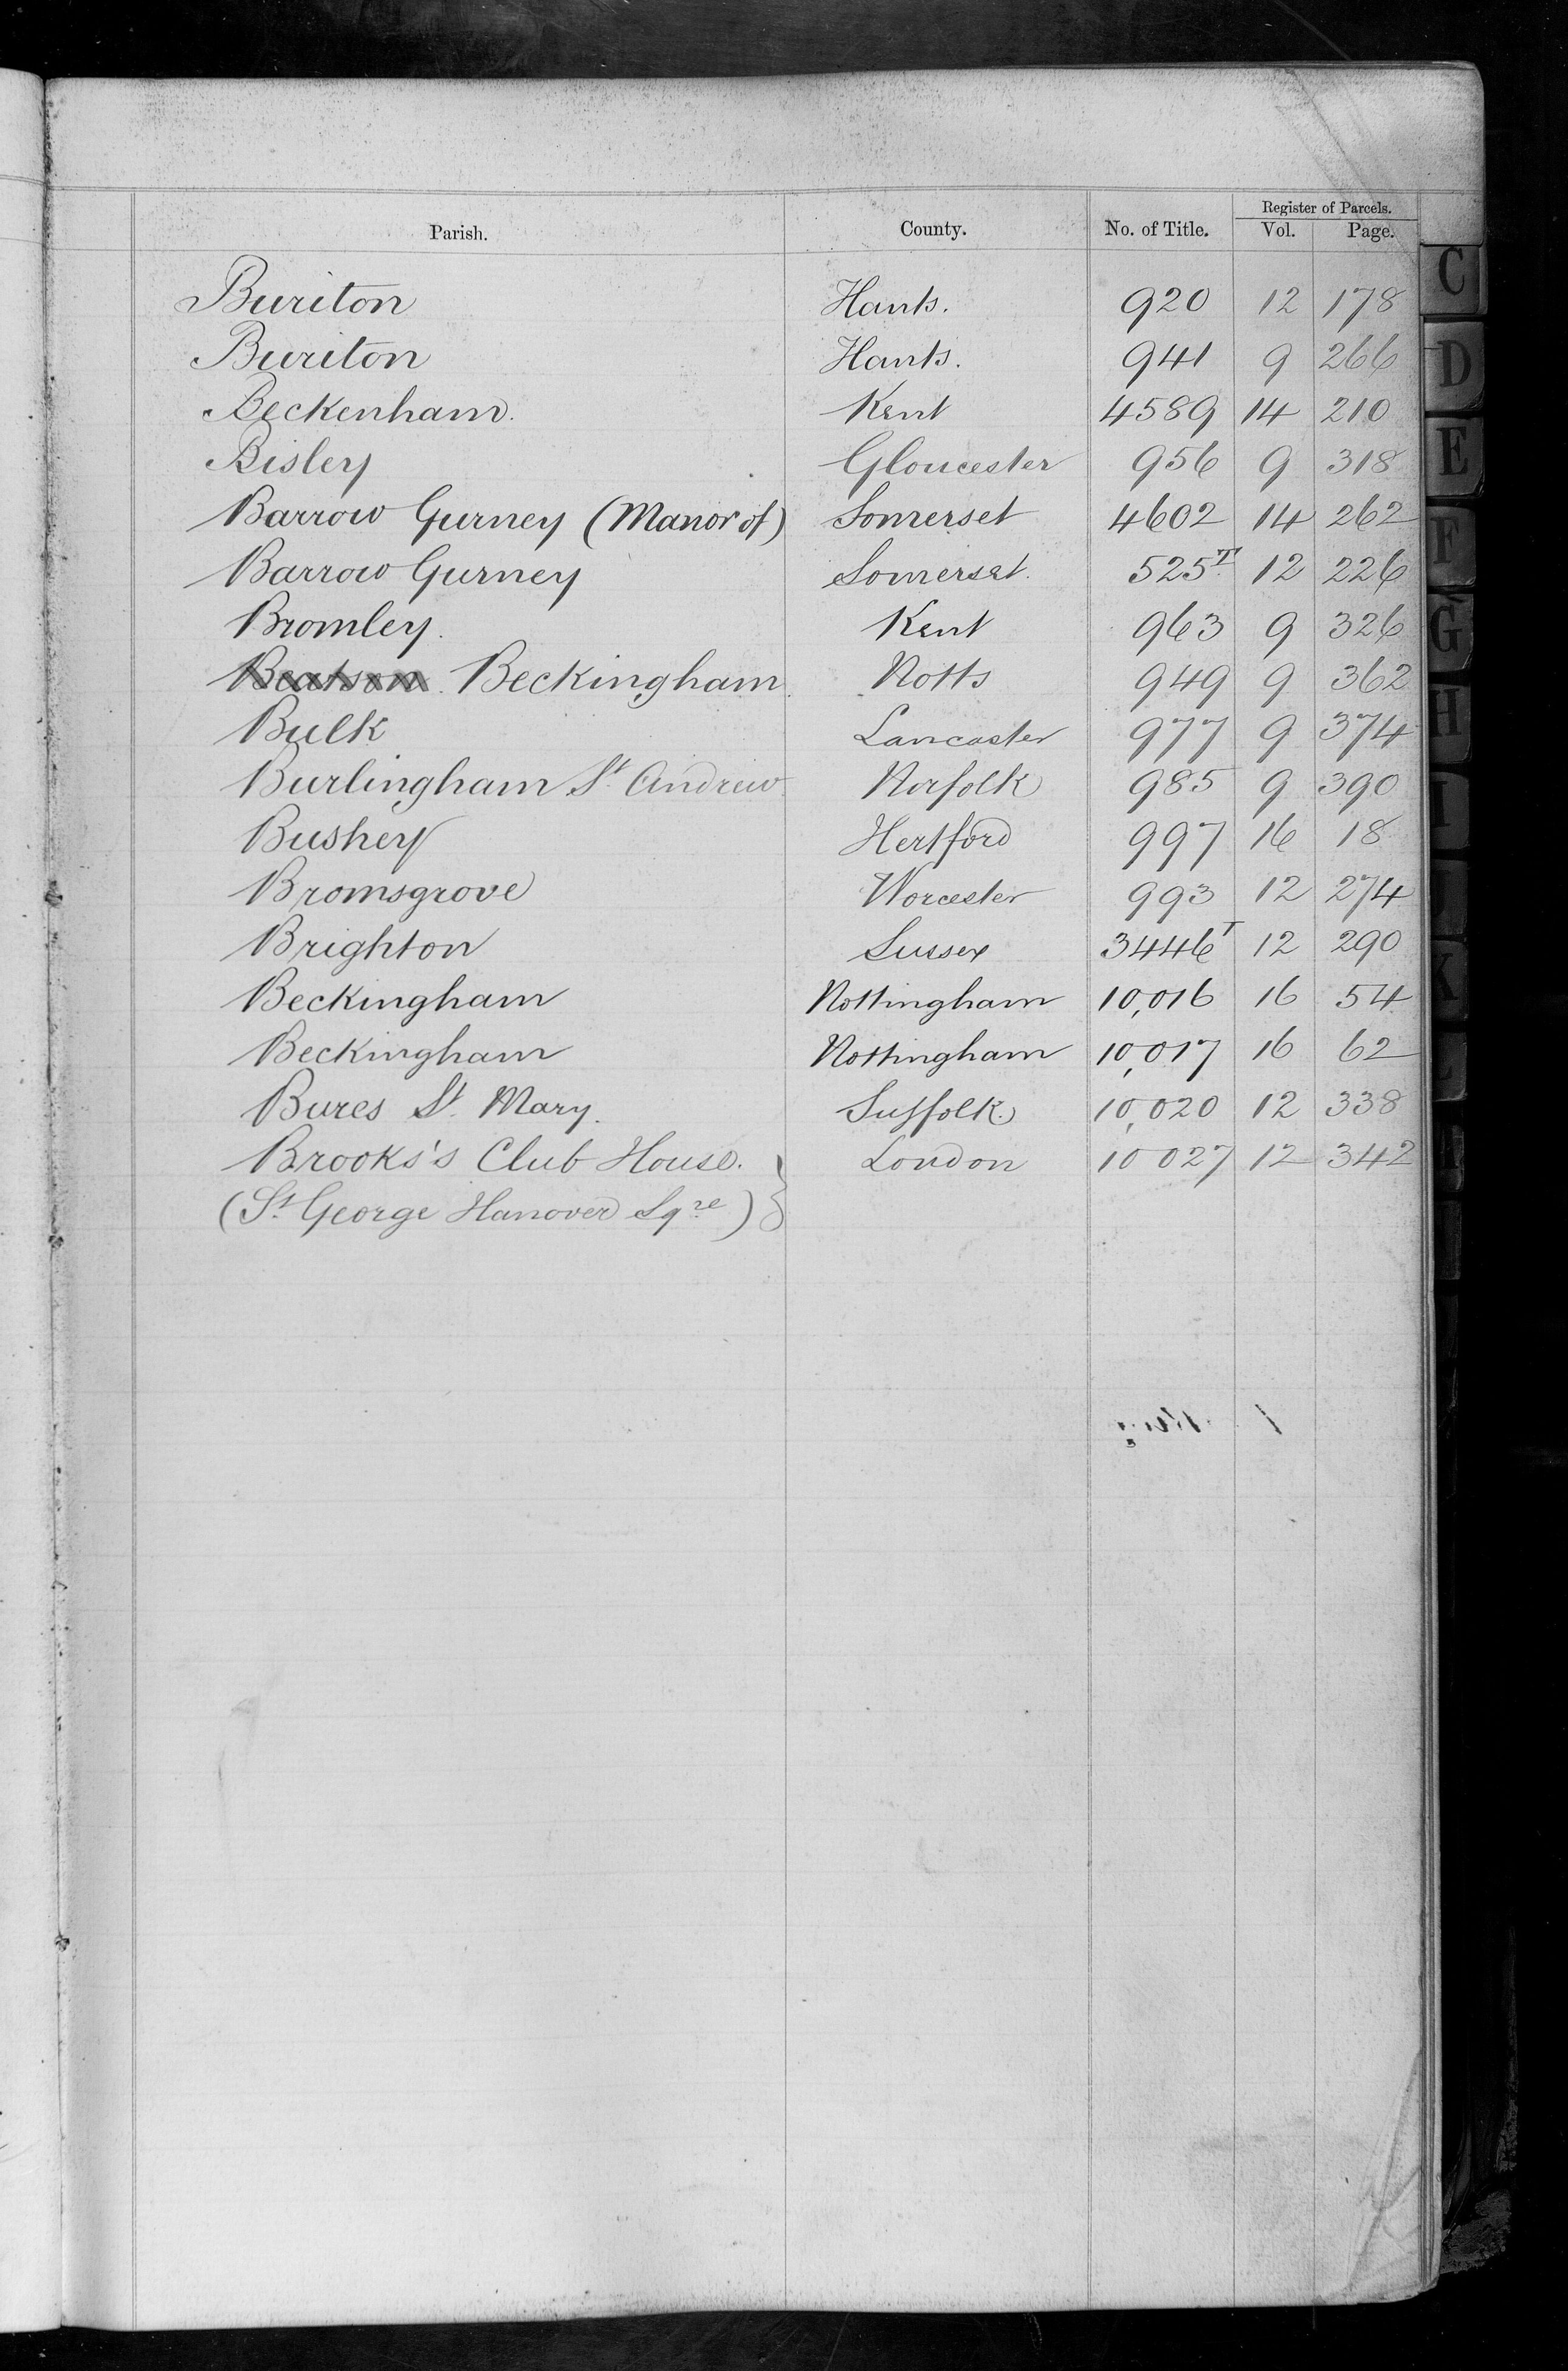 Register of Parcels.
Parish. County. No. of Title. Vol. Page.
Buriton Hants. 920 12 178
Buriton Hants. 941 9 266
Beckenham. Kent 4589 14 210
Bisley Gloucester 956 9 318
Barrow Gurney (Manor of) Somerset 4602 14 262
Barrow Gurney Somerset. 525T 12 226
Bromley. Kent 963 9 326
Beckingham. Notts 949 9 362
Bulk Lancaster 977 9 374
Burlingham St. Andrew Norfolk 985 9 390
Bushey Hertford 997 16 18
Bromsgrove Worcester 993 12 274
Brighton Sussex 3446T 12 290
Beckingham Nottingham 10,016 16 54
Beckingham Nottingham 10,017 16 62
Bures St. Mary. Suffolk 10,020 12 338
Brooks's Club House. London 10027 12 342
(St. George Hanover Sqre)
C
D
E
F
G
H
I
J
K
L